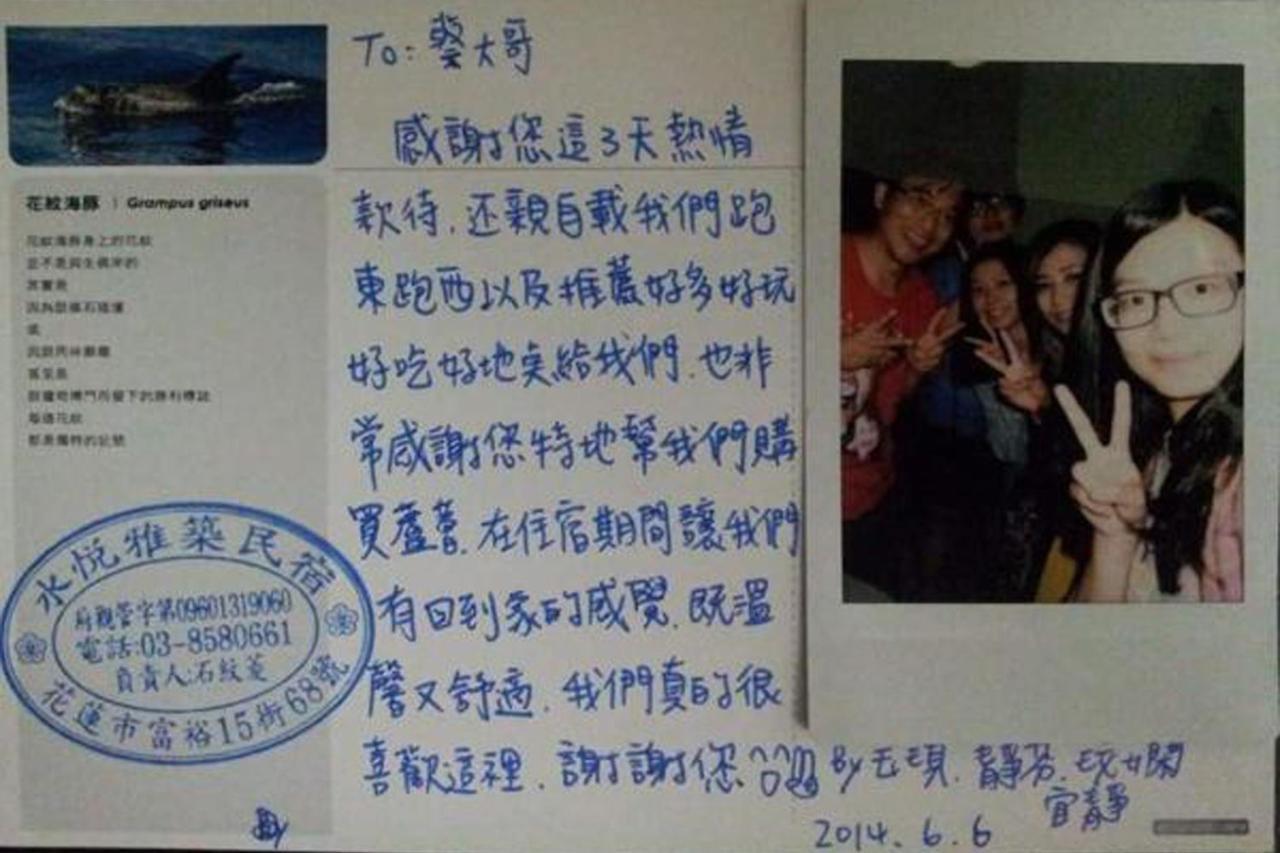 花紋海豚 | Grampus griseus
花紋海豚身上的花紋
並不是與生俱來的
其實是
因為
或
甚至是
每道花紋
都是獨特的記號
水悅雅築民宿
府觀管字第09601319060
電話:03-8580661
負責人:石紋菱
花蓮市富裕15街68號
To: 蔡大哥
感謝您這3天熱情
款待,还親自載我們跑
東跑西以及推薦好多好玩
好吃好地奌給我們,也非
常感謝您特地幫我們購
買蘆薈,在住宿期間讓我們
有回到家的感覺,既溫
馨又舒適,我們真的很
喜歡這裡,謝謝您
By 玉琪.靜芬.
宜靜
2014.6.6